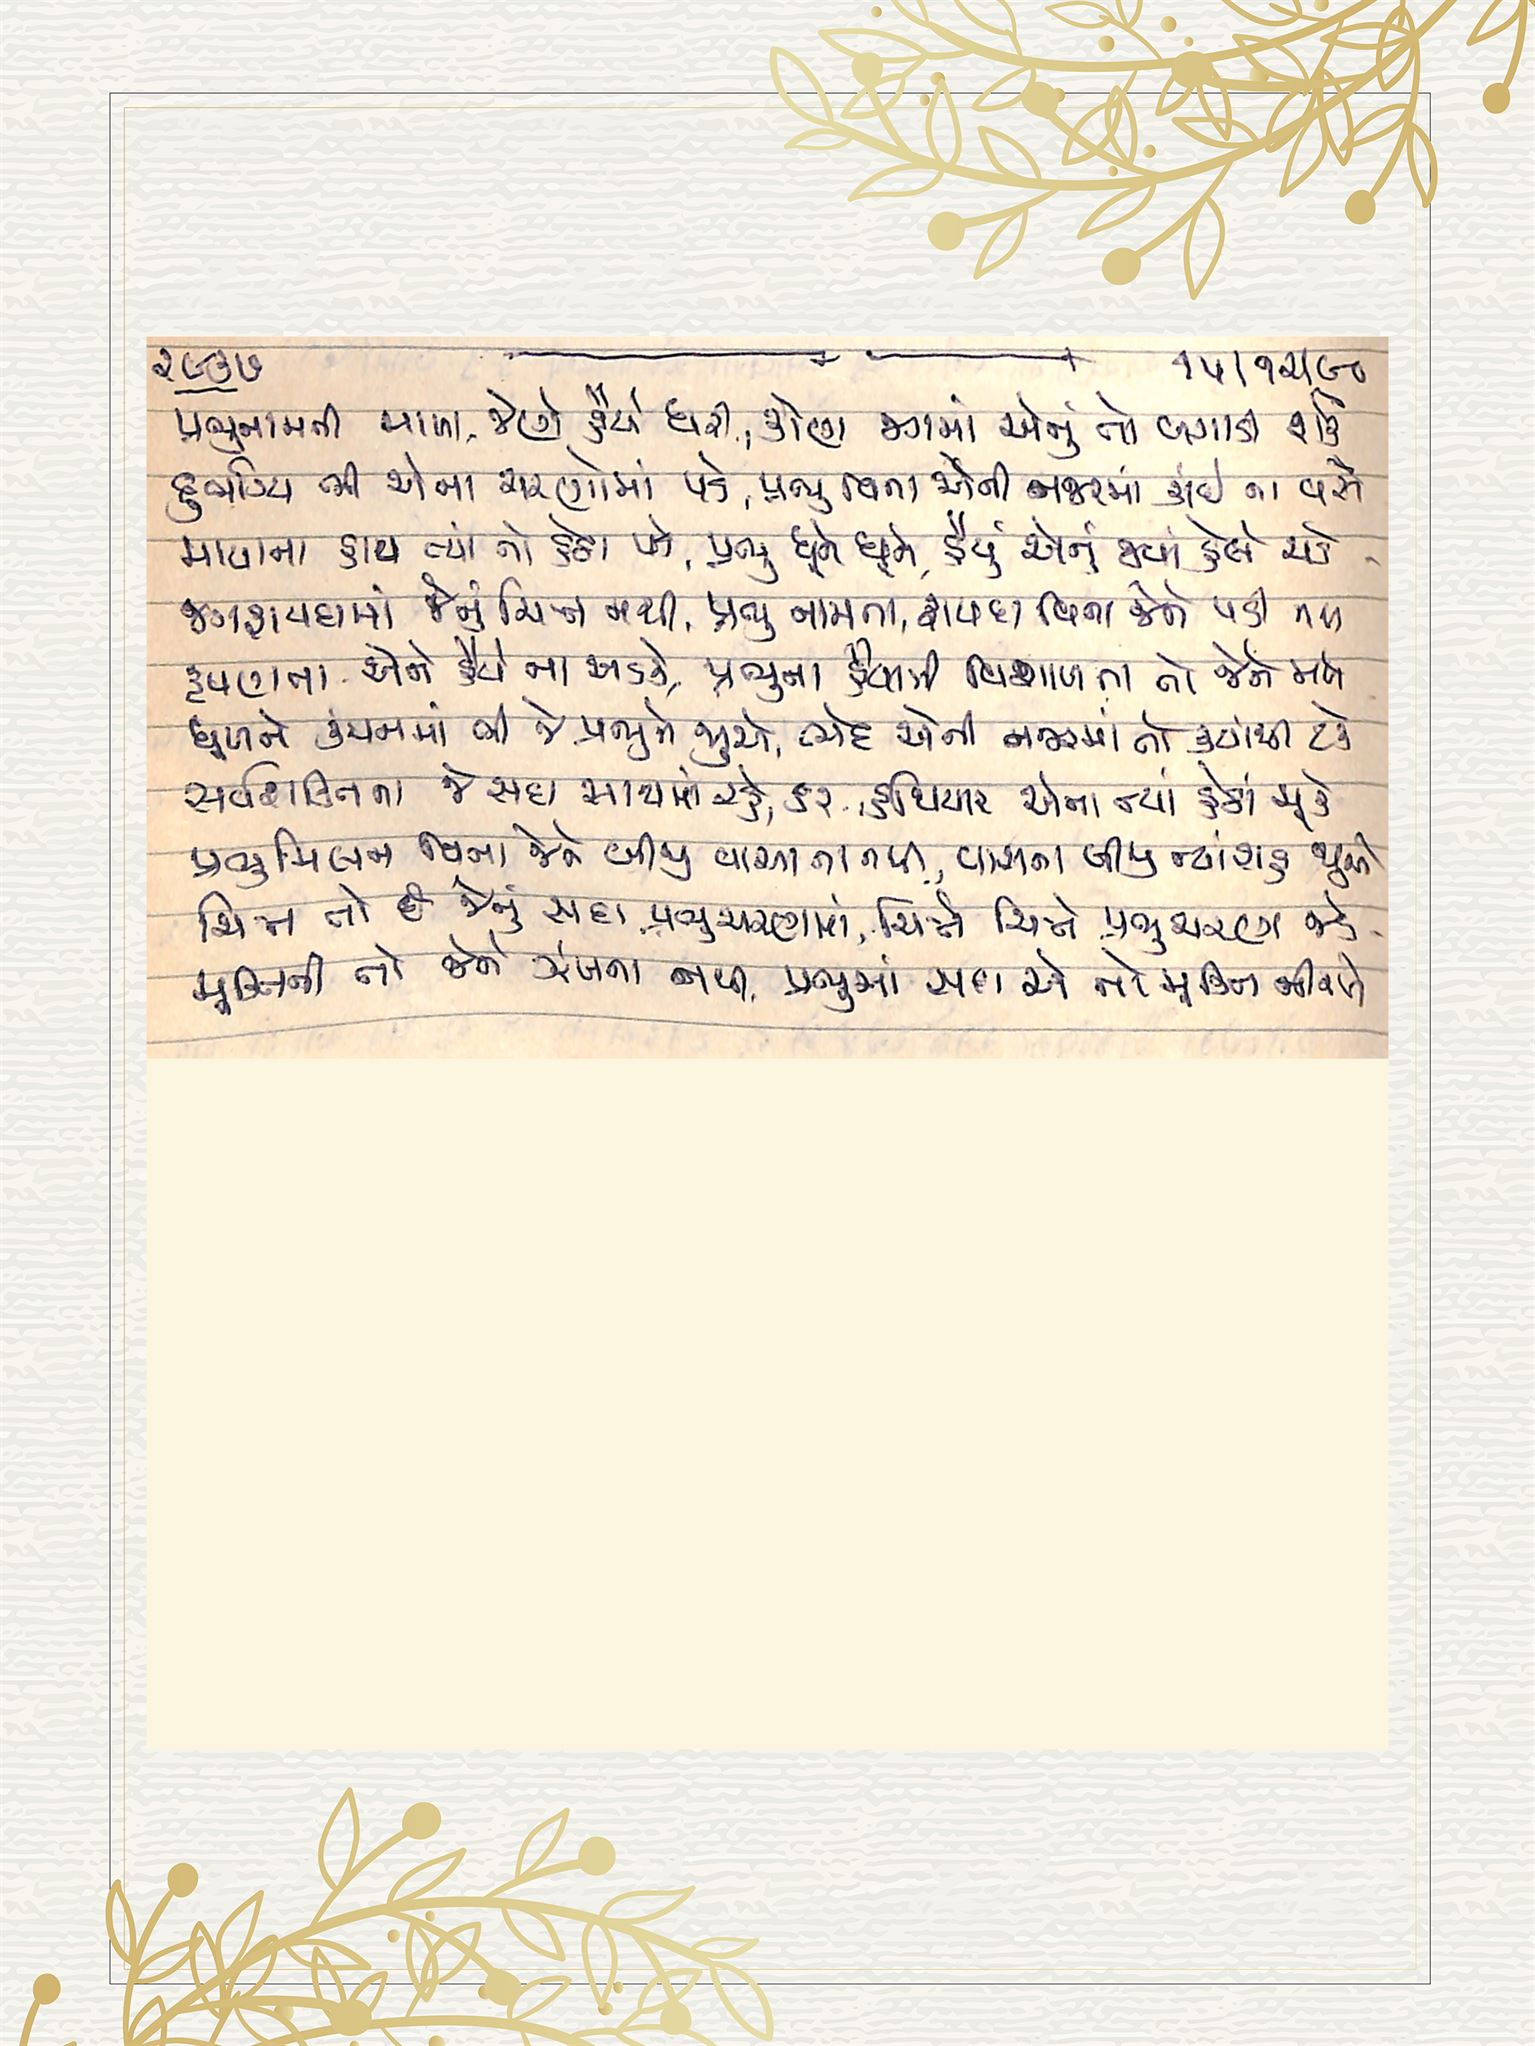 ૨૯૩૭ ૧૫/૧૨/૯૦
પ્રભુનામની માળા જેણે હૈયે ધરી, કોણ જગમાં એનું તો બગાડી શકે
દુર્ભાગ્ય ભી એના ચરણોમાં પડે, પ્રભુ વિના એની નજરમાં કાંઈ ના વસે
માયાના હાથ ત્યાં તો હેઠા પડે, પ્રભુ ધૂને ધૂને, હૈયું એનું જ્યાં હેલે ચડે
જગફાયદામાં જેનું ચિત્ત નથી, પ્રભુ નામના, ફાયદા વિના જેને પડી નથી
કૃપણતા એને હૈયે ના અડકે, પ્રભુના હૈયાની વિશાળતા તો જેને મળે
ધૂળને કંચનમાં ભી જે પ્રભુને જુએ, ભેદ એની નજરમાં તો ક્યાંથી ટકે
સર્વશક્તિના જે સદા સાથમાં રહે, ડર, હથિયાર એના ત્યાં હેઠાં મૂકે
પ્રભુમિલન વિના જેને બીજી વાસના નથી, વાસના બીજી ત્યાં શકે
ચિત્ત તો છે જેનું સદા પ્રભુચરણમાં, ચિત્તે ચિત્તે પ્રભુચરણ જડે
મૂક્તિની તો જેને ઝંખના નથી, પ્રભુમાં સદા એ તો મૂક્તિ નીરખે